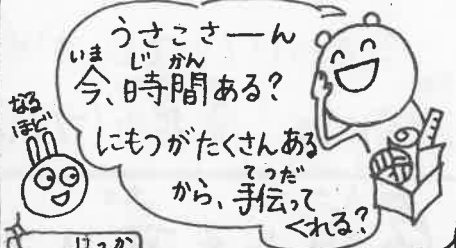 うさこさーん
いま じかん
今、時間ある?
にもつがたくさんある
てつだ
から、手伝って
くれる?
なる
ほど
けっか